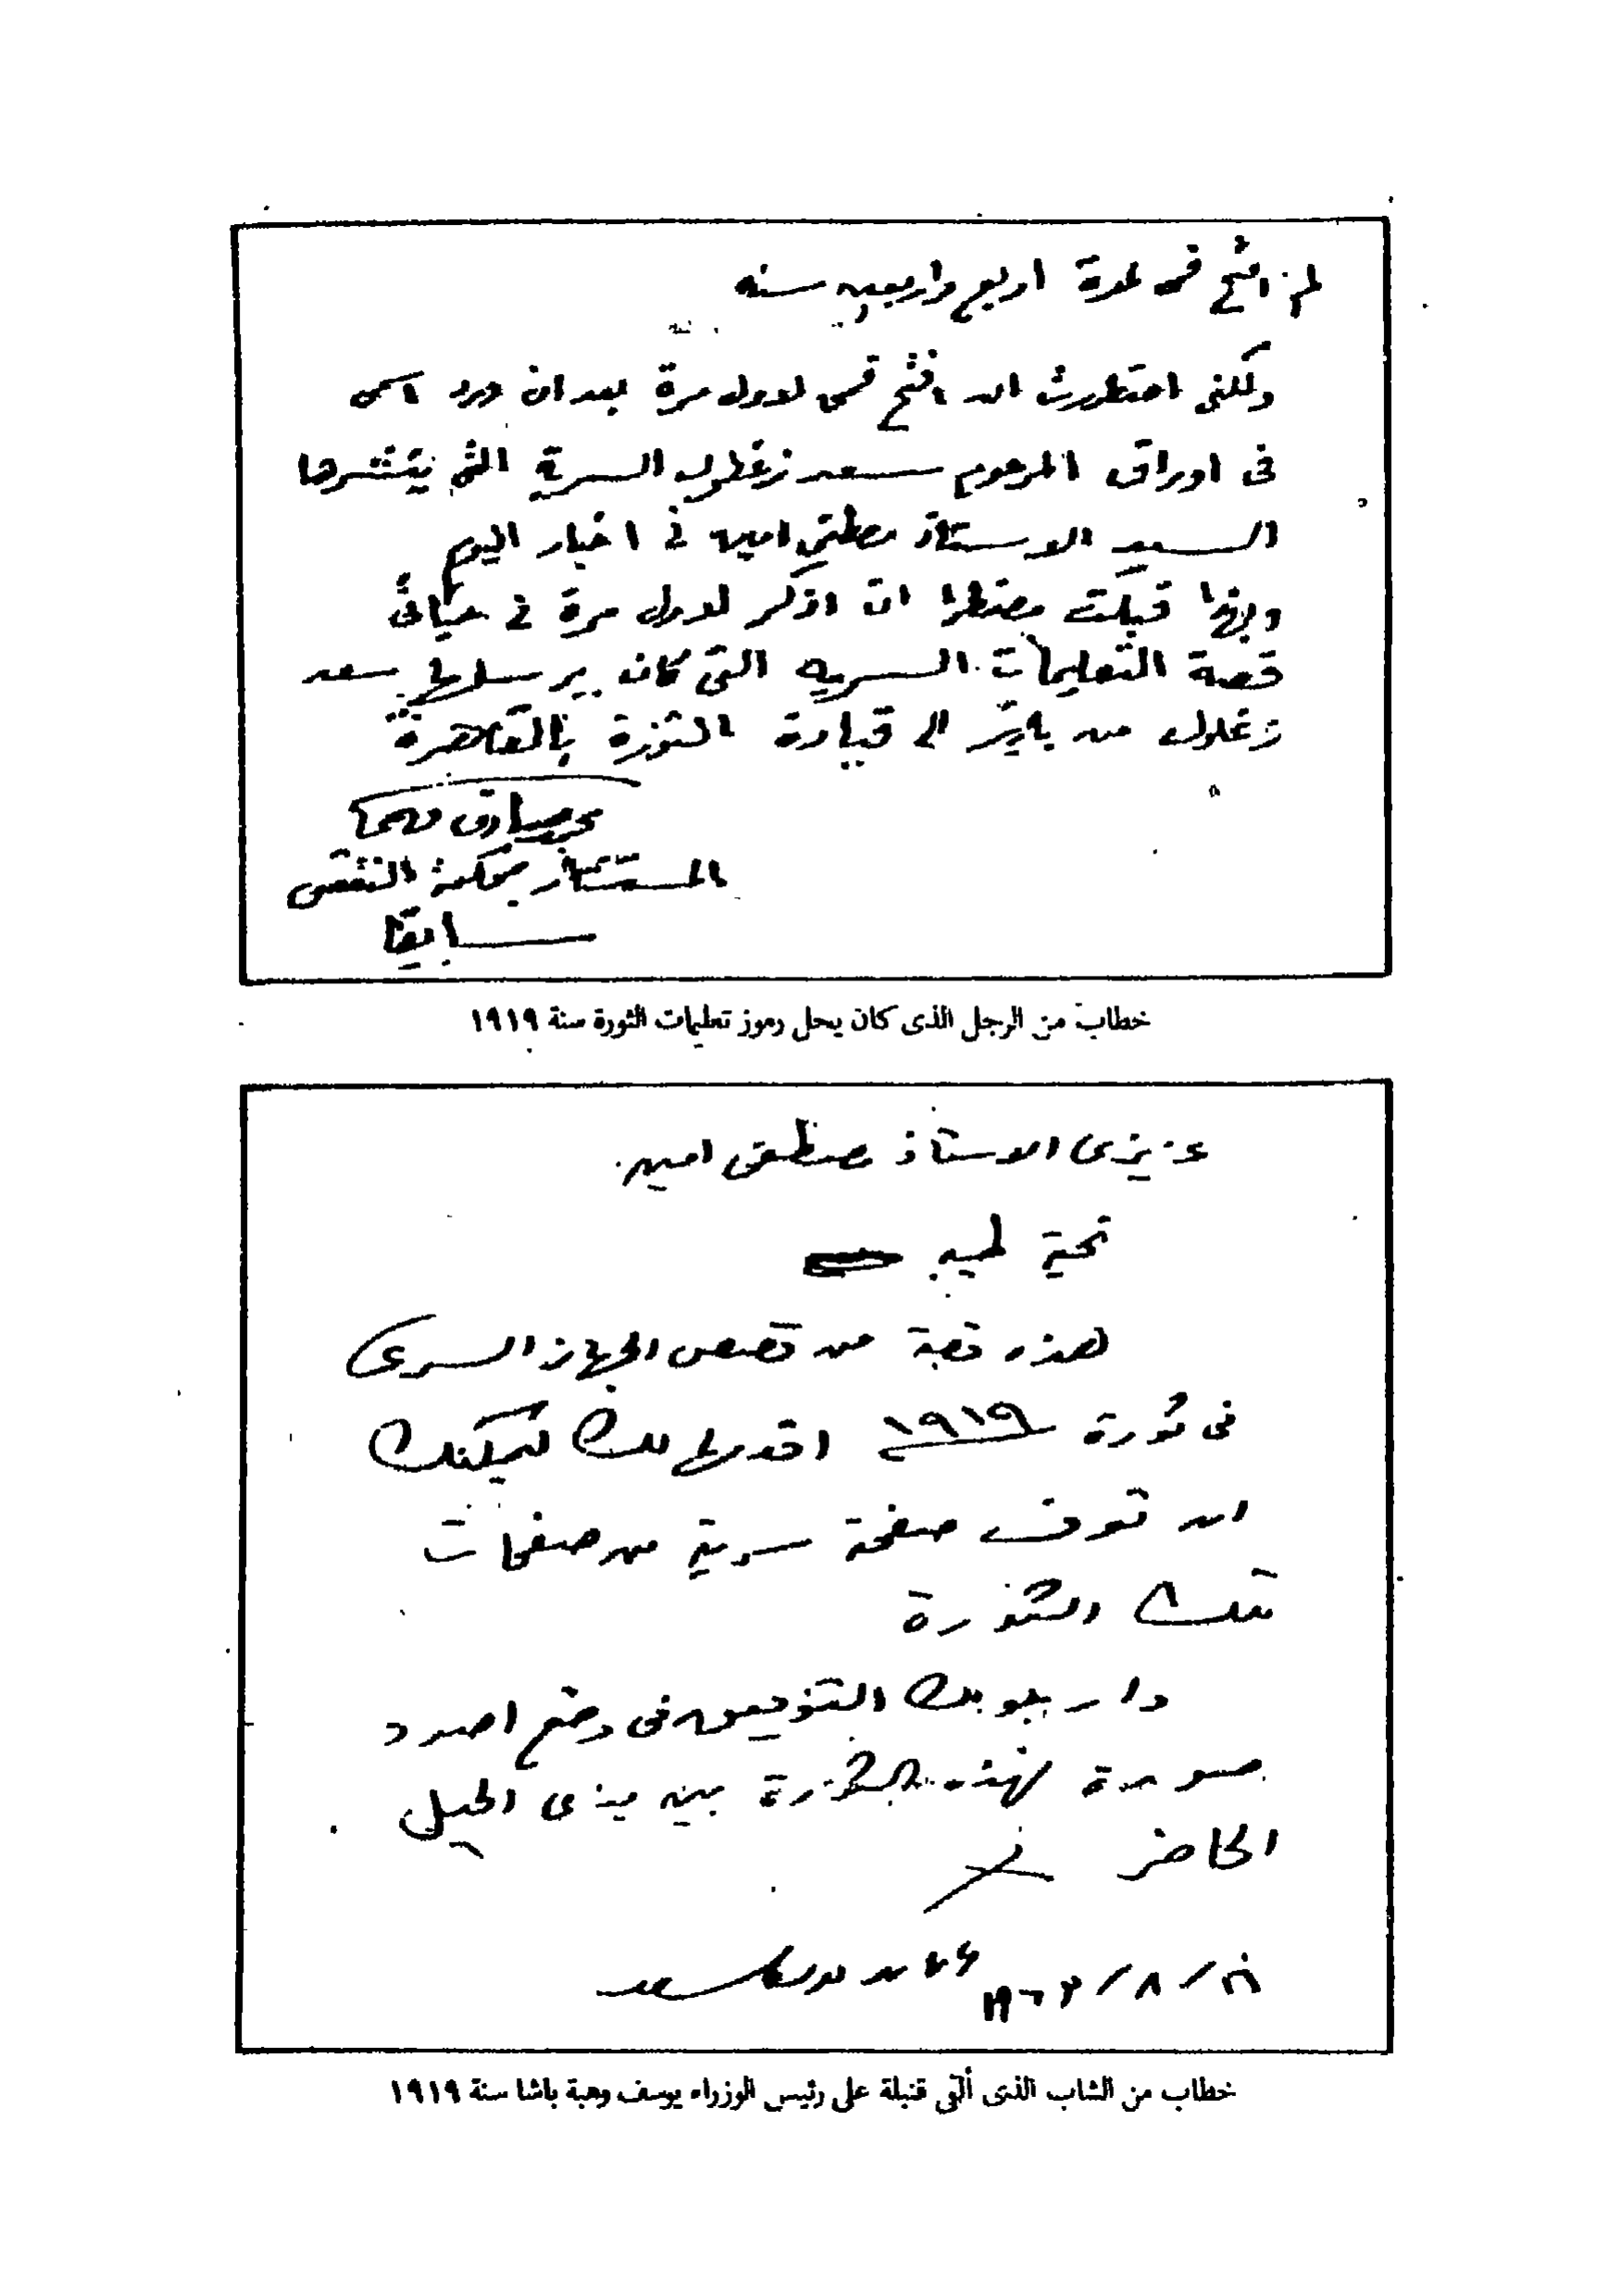 لم افتح فمى لمدة اربع واربعين سنه
ولكنى اضطررت ان افتح فمى لاول مرة بعد ان ورد اسمى
فى اوراق المرحوم سعد زغلول السرية التى ينشرها
السيد الاستاذ مصطفى امين فى اخبار اليوم
ولهذا قبلت مضطرا ان اذكر لاول مرة فى حياتى
قصة التعليمات السريه التى كان يرسلها سعد
زغلول من باريس الى قيادة الثورة بالقاهرة
محمد صادق فهمى
المستشار بمحكمة النقض
سابقا
خطاب من الرجل الذى كان يحل رموز تعليمات الثورة سنة ١٩١٩
عزيزى الاستاذ مصطفى امين
تحية طيبه
هذه قصة من قصص الجهاز السرى
فى ثورة ١٩١٩ اقدمها لك ليمكنك
ان تعرف صفحة سرية من صفحات
تلك الثورة
وارجو لك التوفيق فى وضع اصدق
صورة لهذه الثورة بين يدى الجيل
الحاضر
١٩٦٣/٨/ عريان يوسف سعد
خطاب من الشاب الذى ألقى قنبلة على رئيس الوزراء يوسف وهبة باشا سنة ١٩١٩